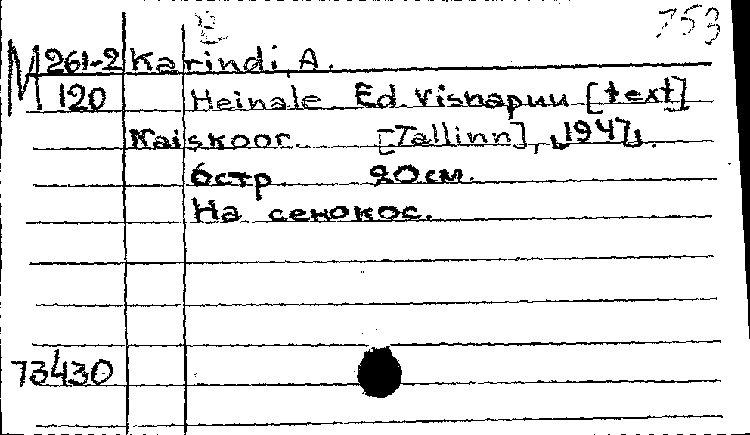 753
M 261-2 Karindi, A.
120 Heinale Ed. Visnapuu [text]
Naiskoor. [Tallinn], 1947.
6стр. 20см.
На сенокос.
73430